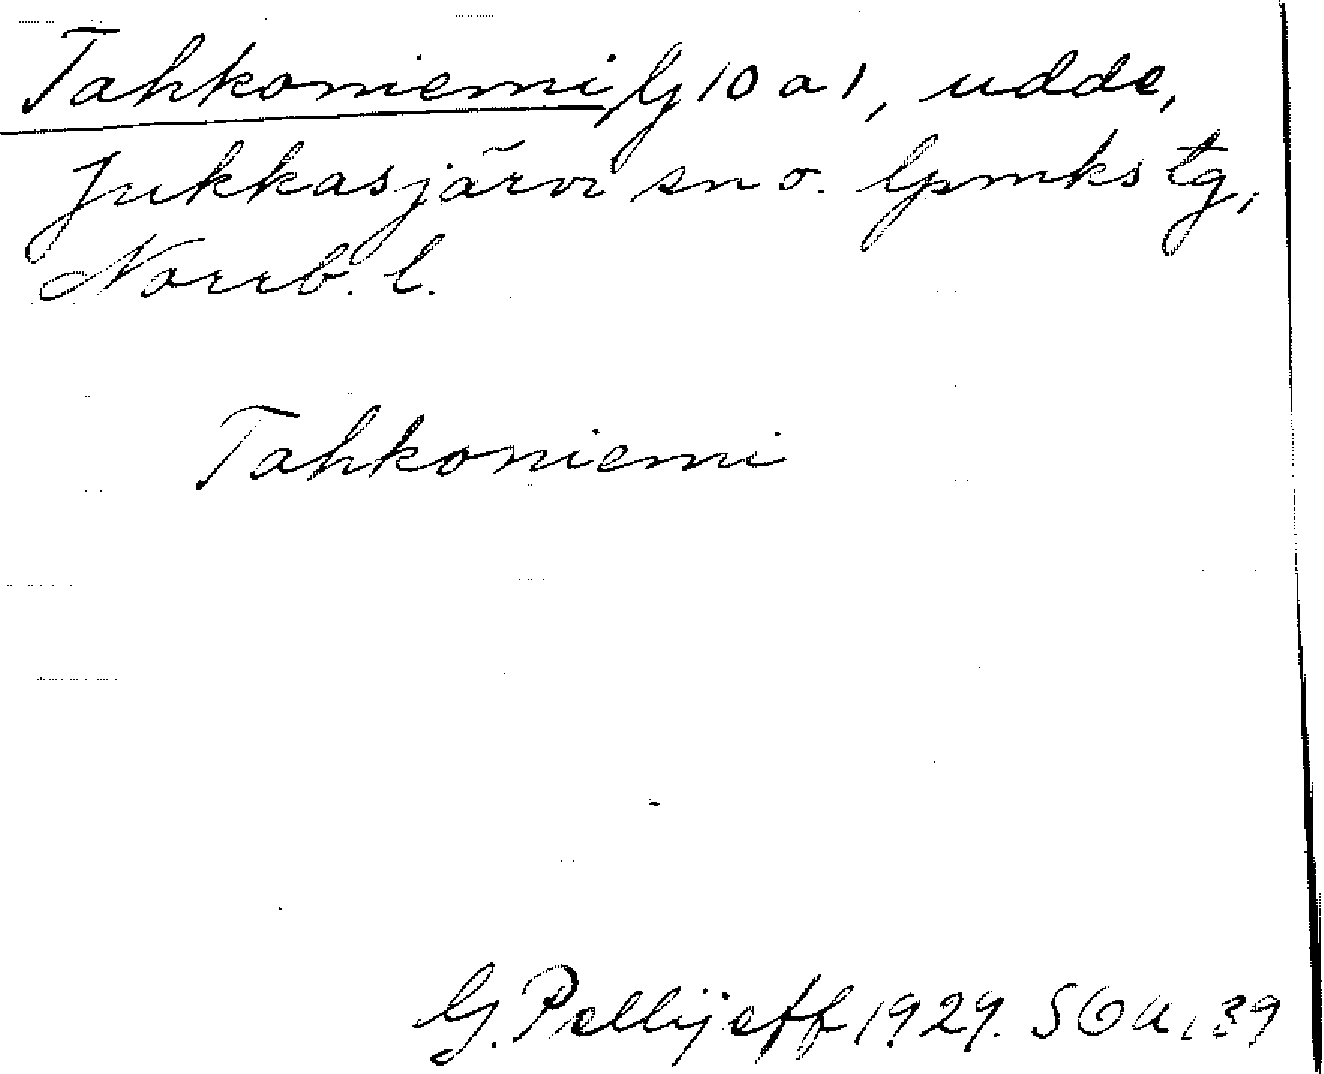 Tahkoniemi, G 10 a 1, udde,
Jukkasjärvi sn o. lpmks tg,
Norrb. l.
Tahkoniemi
G. Pellijeff 1929. SOA, 39